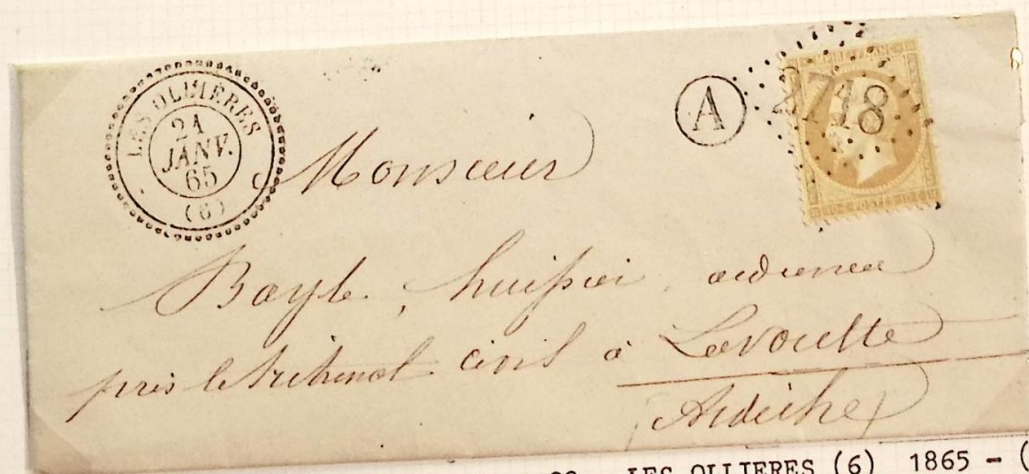 LES OLLIÈRES
21
JANV.
65
(6)
A
2718
EMPIRE FRANC
10 C POSTES 10 C
Monsieur
Bayle, huissier audiencier
près le tribunal civil à Lavoulte
Ardèche
LES OLLIERES (6) 1865 - (